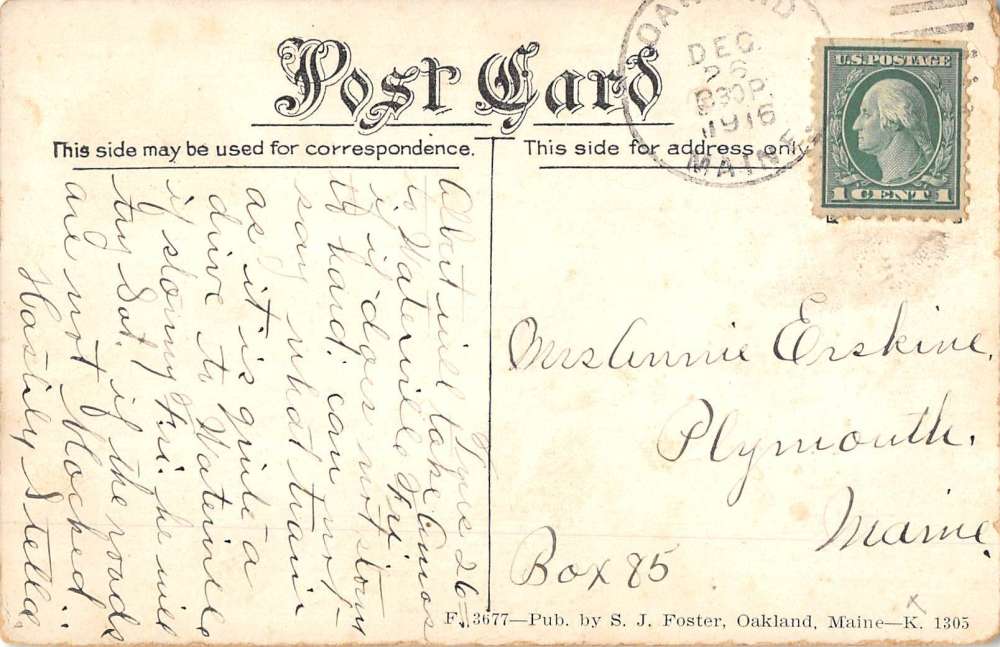 Post Card
This side may be used for correspondence.
This side for address only
OAKLAND
DEC.
26
1916
MAINE
U.S. POSTAGE
1 CENT 1
26
Albert will take Amos
to Waterville Fri.
if it does not storm
to hard. can not
say what train
as it is quite a
drive to Waterville
if stormy Fri. he will
try Sat. if the roads
are not blocked.
Hastily Stella.
Mrs Annie Erskine,
Plymouth,
Maine,
Box 85
F. 3677—Pub. by S. J. Foster, Oakland, Maine—K. 1305
x